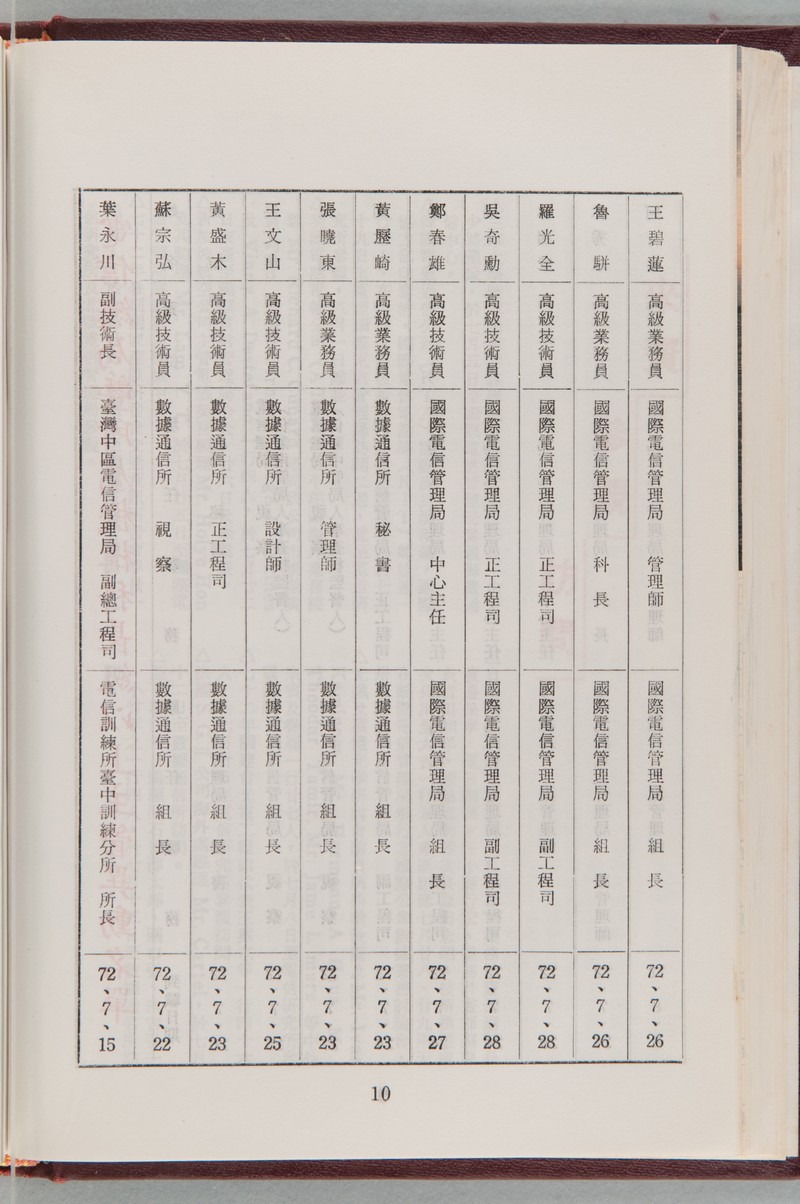 王碧蓮 高級業務員 國際電信管理局 管理師 國際電信管理局 組長 72、7、26
魯駢 高級業務員 國際電信管理局 科長 國際電信管理局 組長 72、7、26
羅光全 高級技術員 國際電信管理局 正工程司 國際電信管理局 副工程司 72、7、28
吳奇勳 高級技術員 國際電信管理局 正工程司 國際電信管理局 副工程司 72、7、28
鄭春雄 高級技術員 國際電信管理局 中心主任 國際電信管理局 組長 72、7、27
黃歷崎 高級業務員 數據通信所 秘書 數據通信所 組長 72、7、23
張曉東 高級業務員 數據通信所 管理師 數據通信所 組長 72、7、23
王文山 高級技術員 數據通信所 設計師 數據通信所 組長 72、7、25
黃盛木 高級技術員 數據通信所 正工程司 數據通信所 組長 72、7、23
蘇宗弘 高級技術員 數據通信所 視察 數據通信所 組長 72、7、22
葉永川 副技術長 臺灣中區電信管理局 副總工程司 電信訓練所臺中訓練分所 所長 72、7、15
10